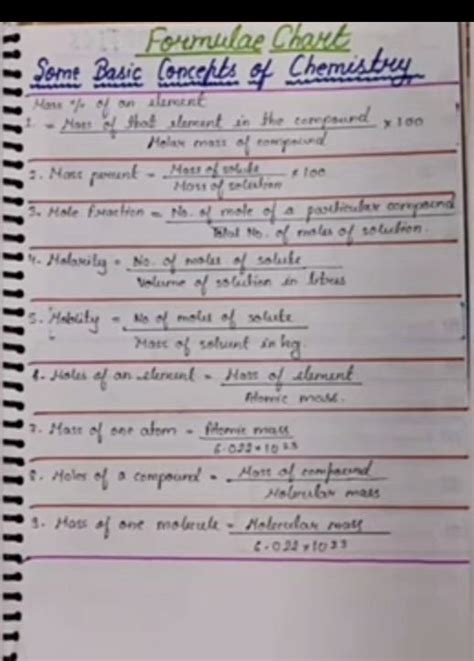 Formulae Chart
Some Basic Concepts of Chemistry
Mass % of an element
1. = Mass of that element in the compound × 100
Molar mass of compound
2. Mass percent = Mass of solute × 100
Mass of solution
3. Mole Fraction = No. of mole of a particular compound
Total No. of moles of solution.
4. Molarity = No. of moles of solute
Volume of solution in litres
5. Molality = No of moles of solute
Mass of solvent in kg.
6. Moles of an element = Mass of element
Atomic mass.
7. Mass of one atom = Atomic mass
6.022×10 23
8. Moles of a compound = Mass of compound
Molecular mass
9. Mass of one molecule = Molecular mass
6.022×10 23